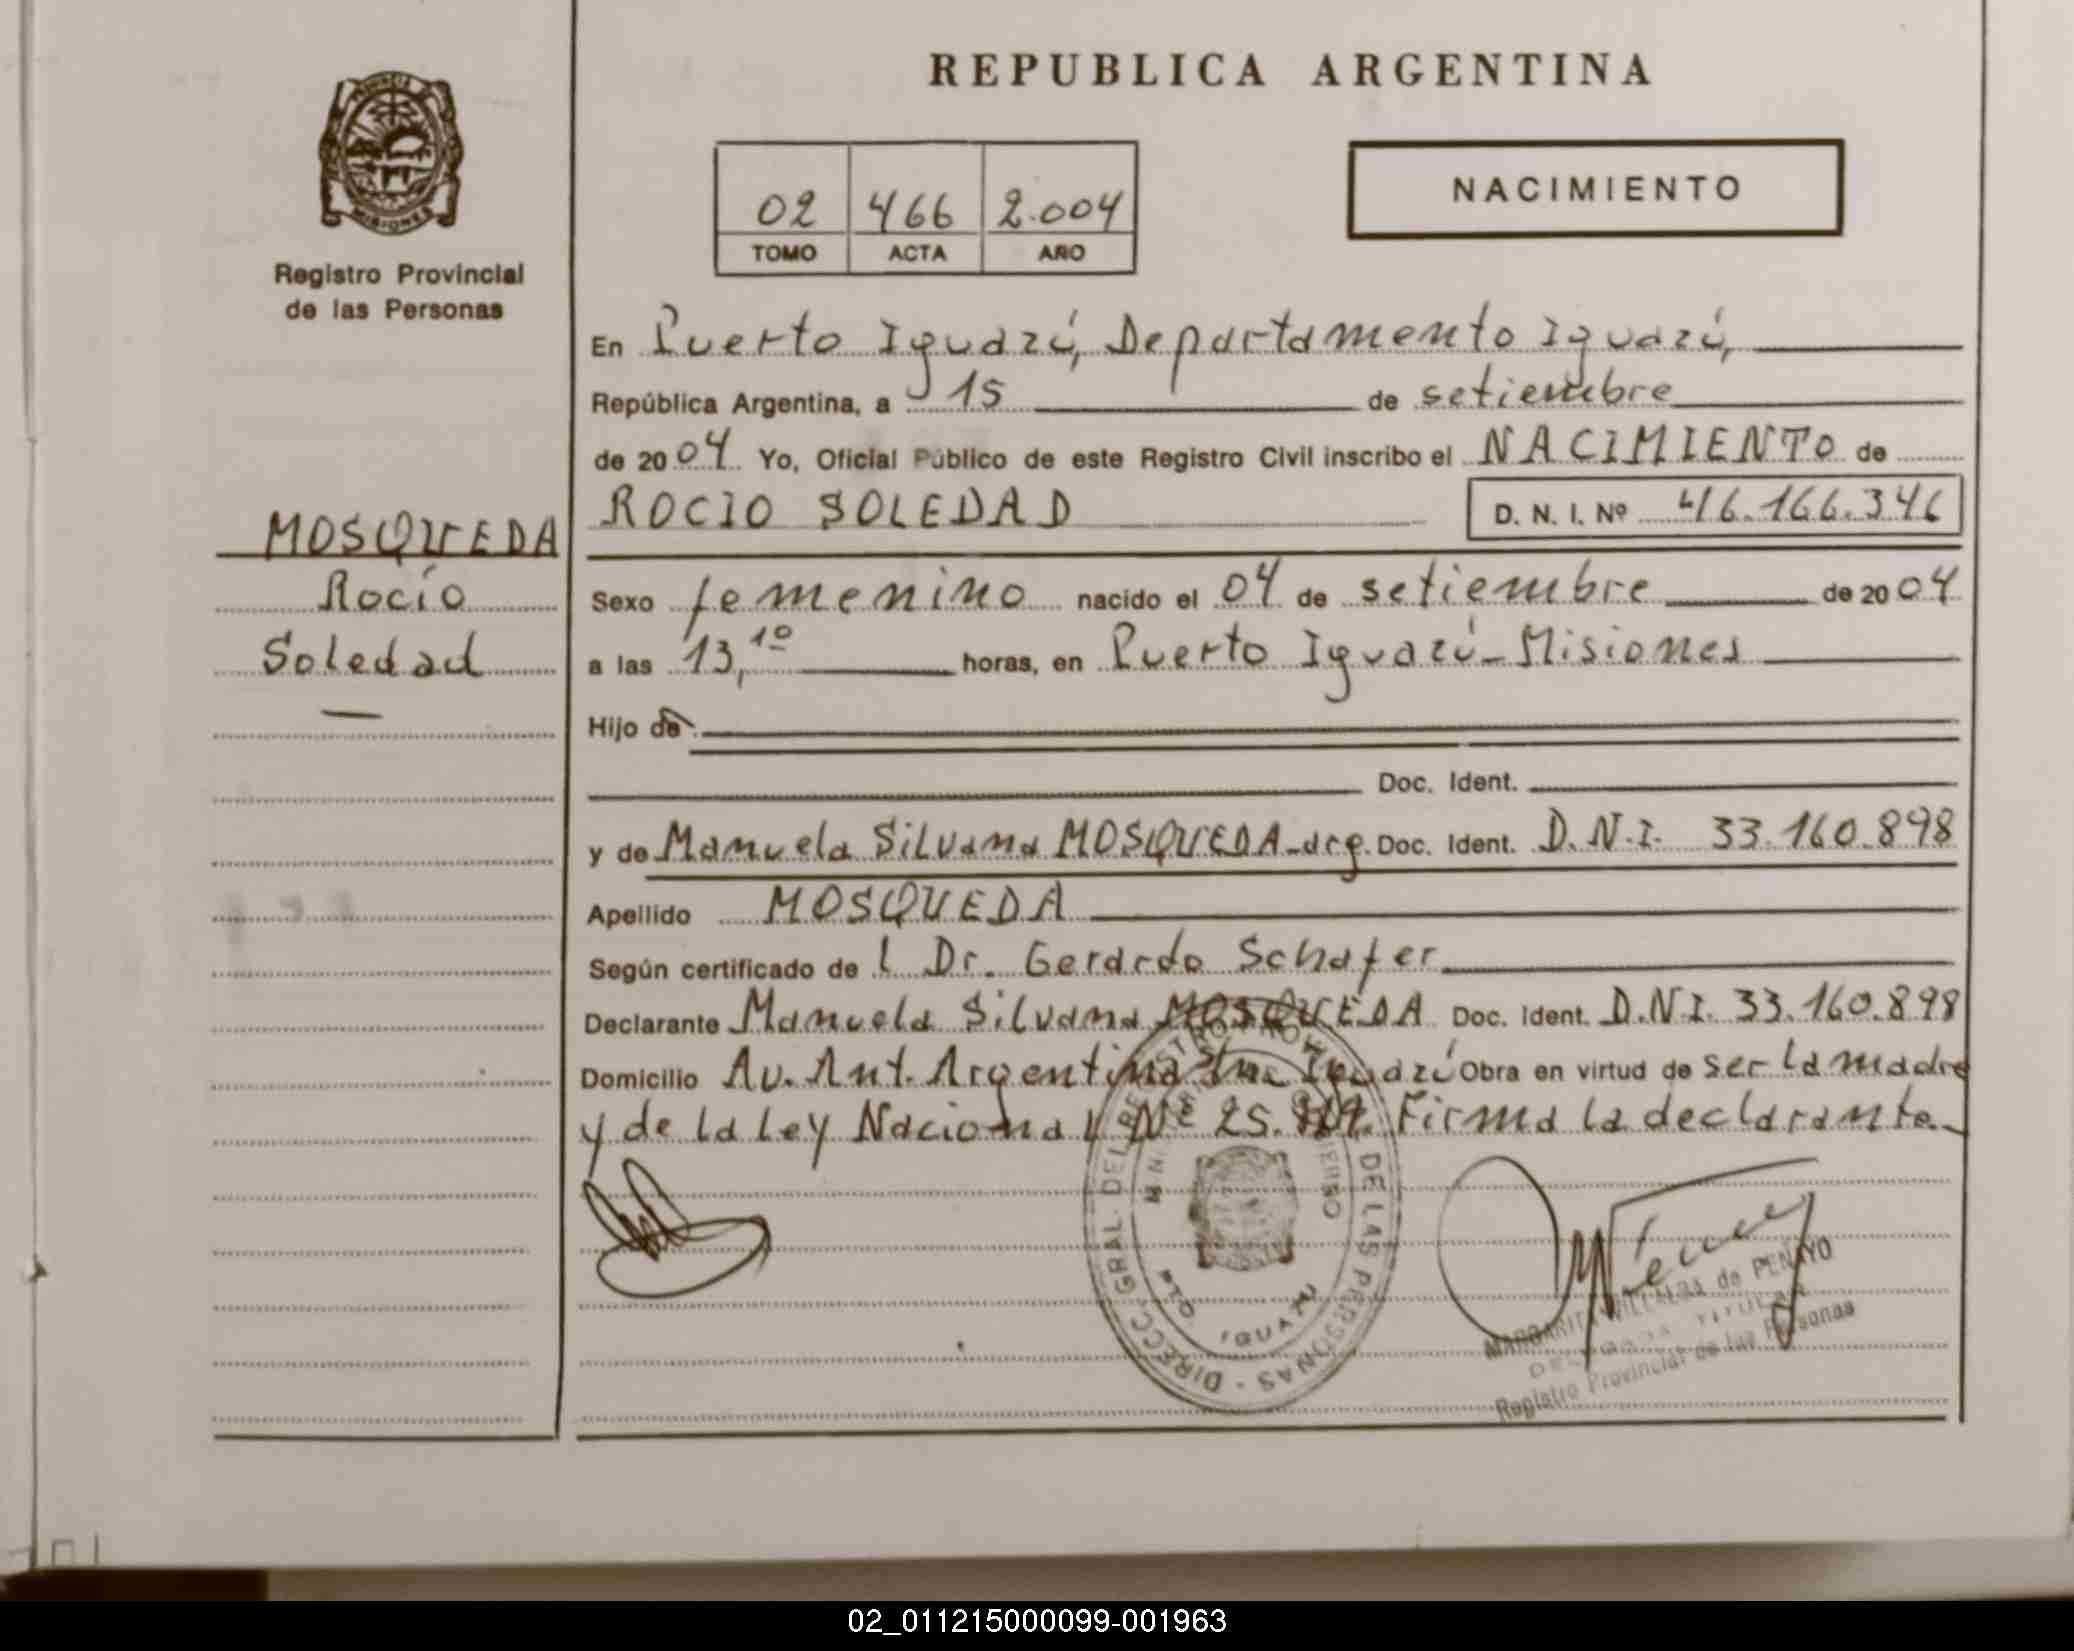 REPUBLICA ARGENTINA
PROVINCIA DE
MISIONES
Registro Provincial
de las Personas
02 466 2.004
TOMO ACTA AÑO
NACIMIENTO
En Puerto Iguazú, Departamento Iguazú,
República Argentina, a 15 de setiembre
de 2004 Yo, Oficial Público de este Registro Civil inscribo el NACIMIENTO de
ROCIO SOLEDAD D. N. I. Nº 46.166.346
MOSQUEDA
Rocío
Soledad
Sexo femenino nacido el 04 de setiembre de 2004
a las 13,10 horas, en Puerto Iguazú-Misiones
Hijo de
Doc. Ident.
y de Manuela Silvana MOSQUEDA-arg. Doc. Ident. D.N.I. 33.160.898
Apellido MOSQUEDA
Según certificado de l Dr. Gerardo Schafer
Declarante Manuela Silvana MOSQUEDA Doc. Ident. D.N.I. 33.160.898
Domicilio Av. Ant. Argentina Iguazú Obra en virtud de ser la madre
y de la Ley Nacional Nº 25. Firma la declarante.
DIRECC. GRAL. DEL REGISTRO PROVINCIAL DE LAS PERSONAS
IGUAZU
MARGARITA VILLALBA de PENAYO
DELEGADA TITULAR
Registro Provincial de las Personas
02_011215000099-001963